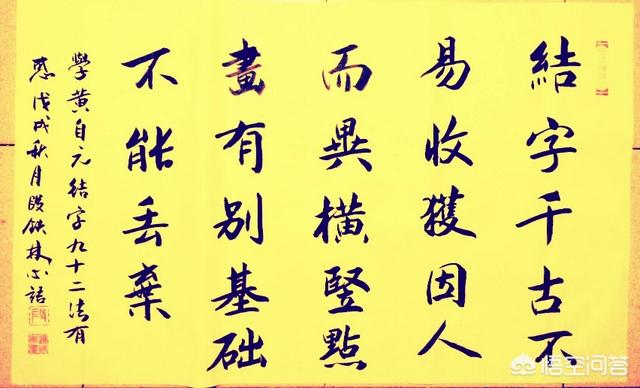 結字千古不
易收獲因人
而異橫豎點
畫有别基础
不能丢棄
學黄自元結字九十二法有
感戊戌秋月段铁林心語
悟空问答